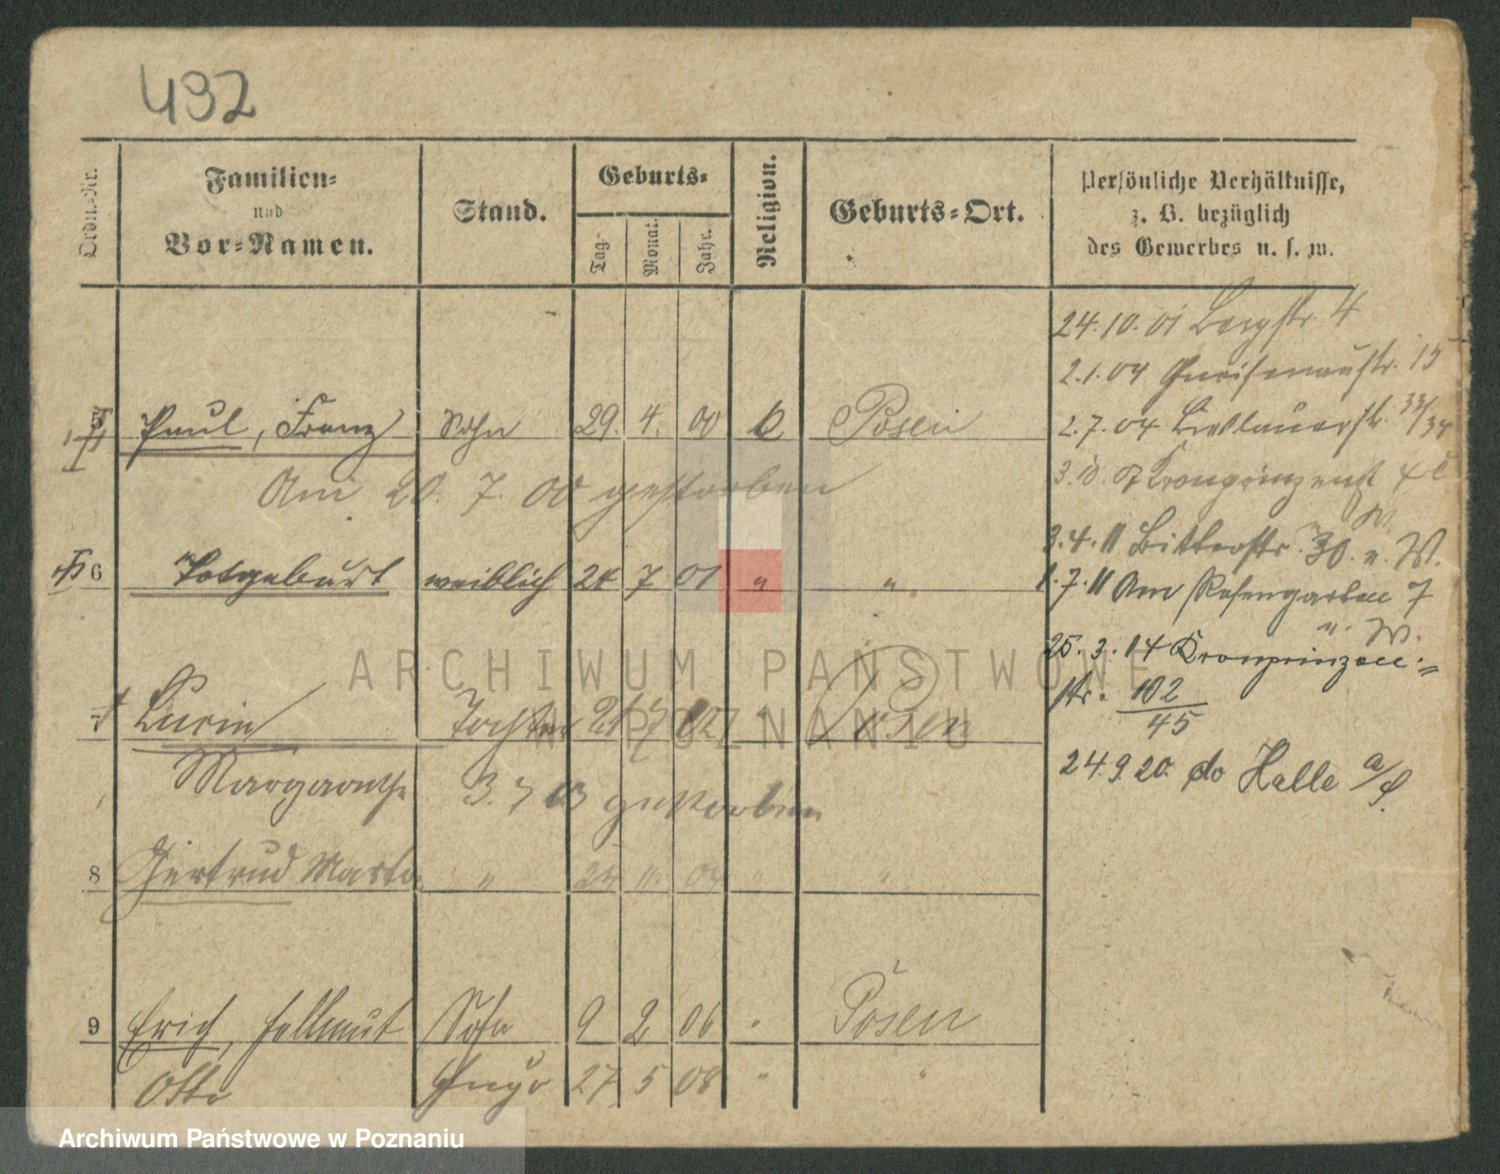 432
Ordn.-Nr.
Familien-
und
Vor-Namen.
Stand.
Geburts-
Tag.
Monat.
Jahr.
Religion.
Geburts-Ort.
Persönliche Verhältnisse,
z. B. bezüglich
des Gewerbes u. s. w.
24.10.01 Bergstr. 4
2.1.04 Gneisenaustr. 15
5 Paul, Franz Sohn 29. 4. 00 Posen
2.7.04 Breslauerstr. 33/34
Am 20. 7. 00 gestorben
3.4.11 Bitterstr. 30. u. W.
6 Totgeburt weiblich 7 01 " "
1.7.11 Am Rosengarten 7
u. W.
25.3.14 Kronprinzen-
str. 102
45
7 Tochter Posen
Margarethe 3.7 03 gestorben
24.9.20. do Halle a/S.
8 Gertrud Marta " "
9 Erich, Hellmut Sohn 9 2 06 " Posen
Otto 27 5 08 " "
ARCHIWUM PAŃSTWOWE
W POZNANIU
Archiwum Państwowe w Poznaniu